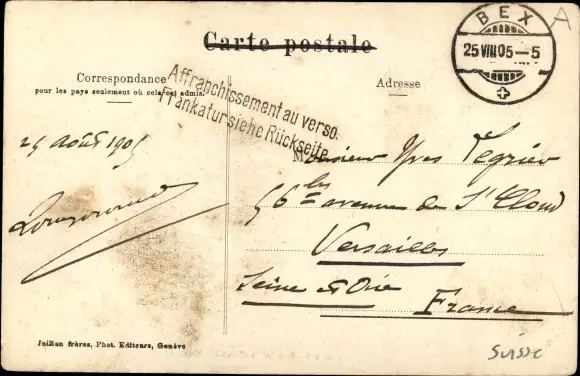 Carte postale
BEX
25 VIII 05-5
A
Correspondance
pour les pays seulement où cela est admis.
Adresse
Affranchissement au verso.
Frankatur siehe Rückseite
25 Août 1905
Monsieur Yves
56 bis avenue de St Cloud
Versailles
Seine et Oise
France
Jullien frères, Phot. Editeurs, Genève
Suisse